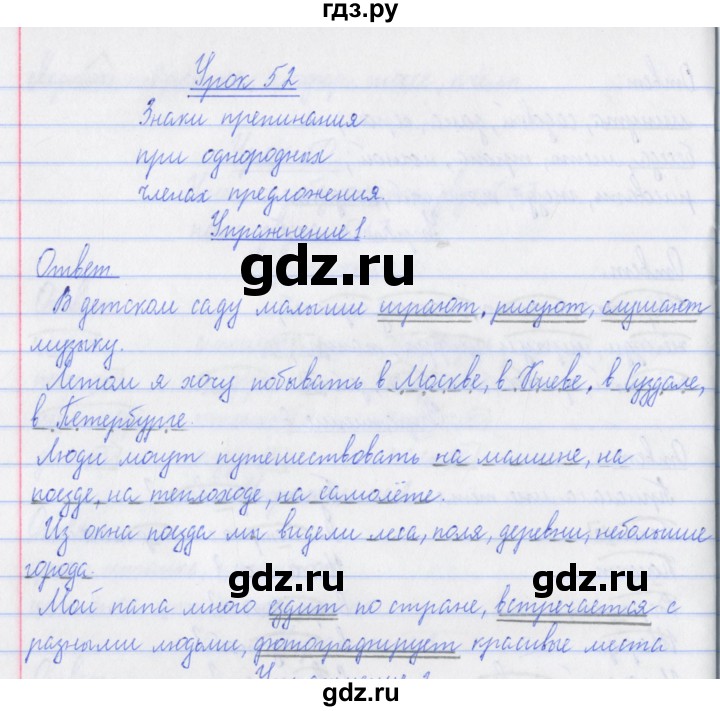 гдз.ру
Урок 52
Знаки препинания
при однородных
членах предложения.
Упражнение 1
gdz.ru
Ответ
В детском саду малыши играют, рисуют, слушают
музыку.
Летом я хочу побывать в Москве, в Киеве, в Суздале,
в Петербурге.
Люди могут путешествовать на машине, на
поезде, на теплоходе, на самолёте.
Из окна поезда мы видели леса, поля, деревни, небольшие
города.
gdz.ru gdz.ru
Мой папа много ездит по стране, встречается с
разными людьми, фотографирует красивые места
gdz.ru